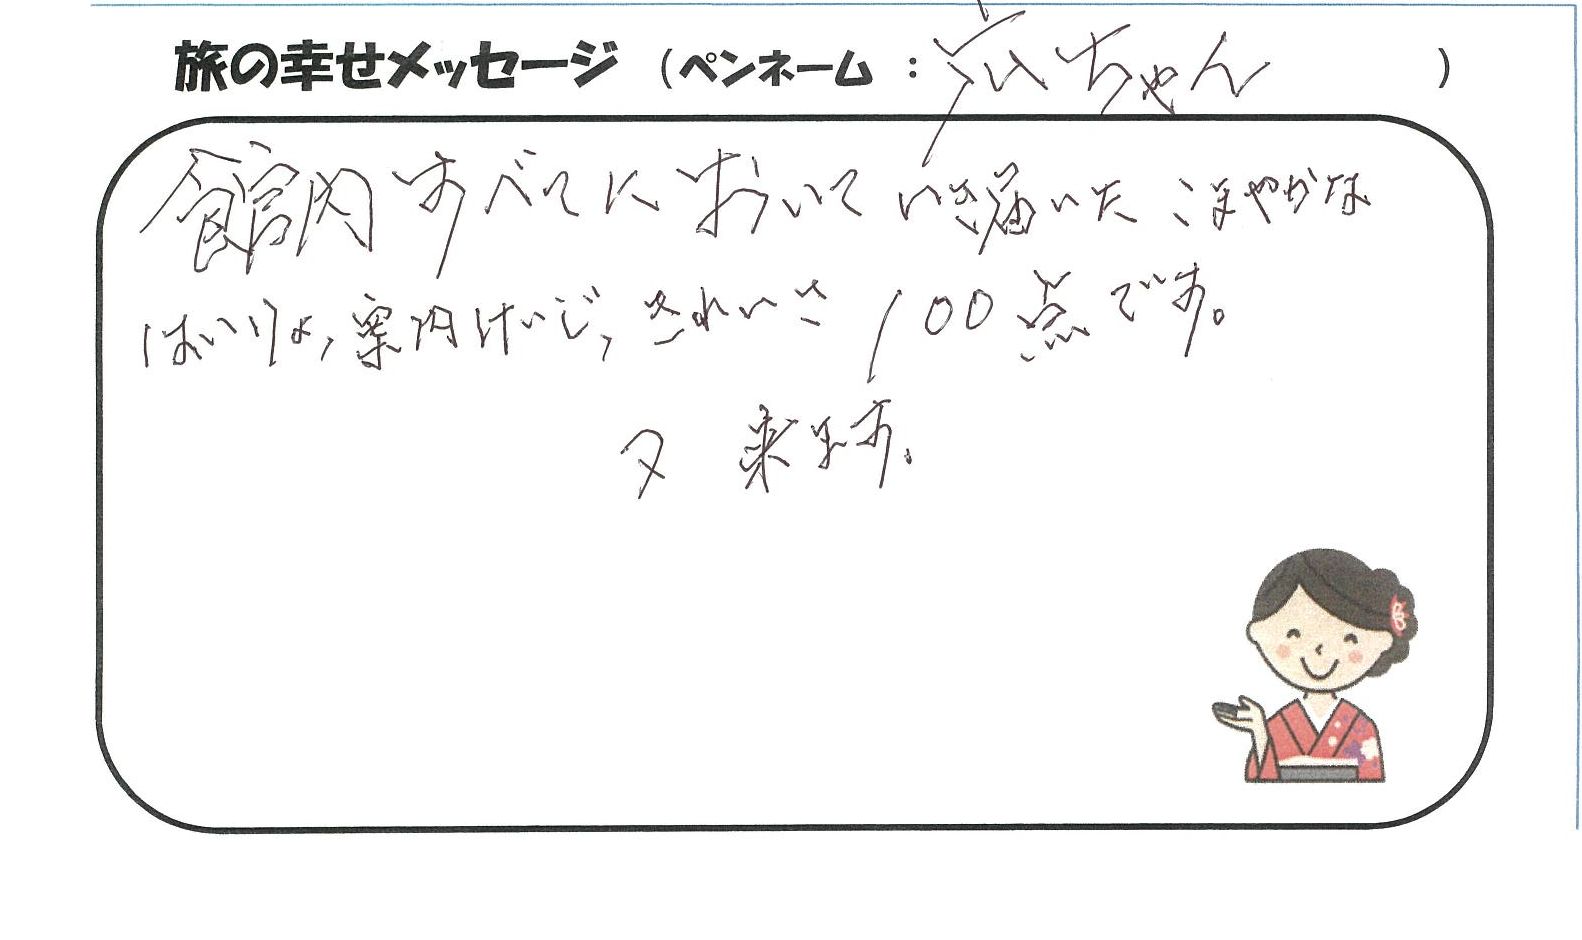 旅の幸せメッセージ （ペンネーム ： 広ちゃん ）
館内すべてにおいていき届いたこまやかな
はいりょ,案内けいじ,きれいさ 100点です。
又 来ます。